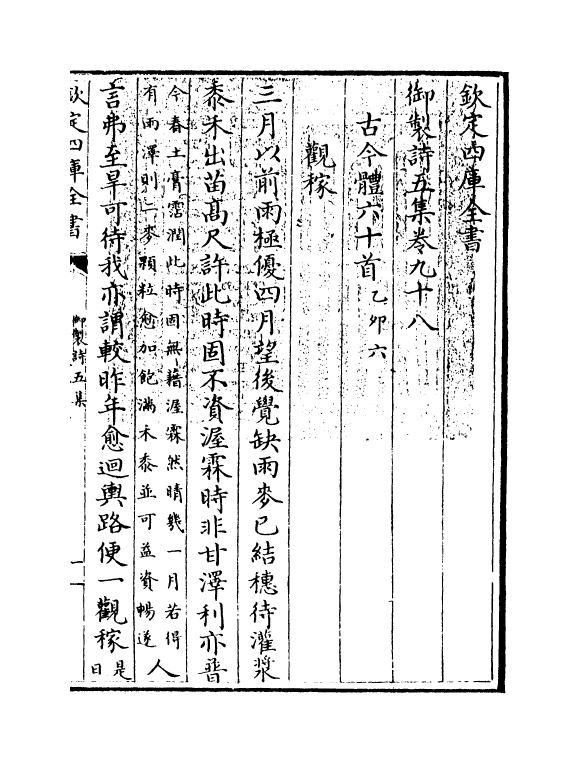 欽定四庫全書
御製詩五集卷九十八
古今體六十首乙卯六
觀稼
三月以前雨極優四月望後覺缺雨麥已結穗待灌漿
黍禾出苗髙尺許此時固不資渥霖時非甘澤利亦普
今春土膏霑潤此時固無藉渥霖然晴幾一月若得
有雨澤則二麥顆粒愈加飽滿禾黍並可益資暢遂
人
言弗至旱可待我亦謂較昨年愈迴輿路便一觀稼是
日
欽定四庫全書
御製詩五集
一